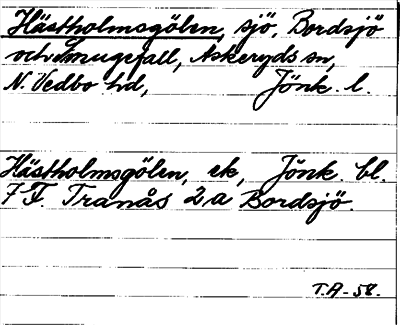 Hästholmsgölen, sjö, Bordsjö
och Smugefall, Askeryds sn,
N. Vedbo hd, Jönk. l.
Hästholmsgölen, ek, Jönk. bl.
7 F. Tranås 2a Bordsjö.
T.A-58.